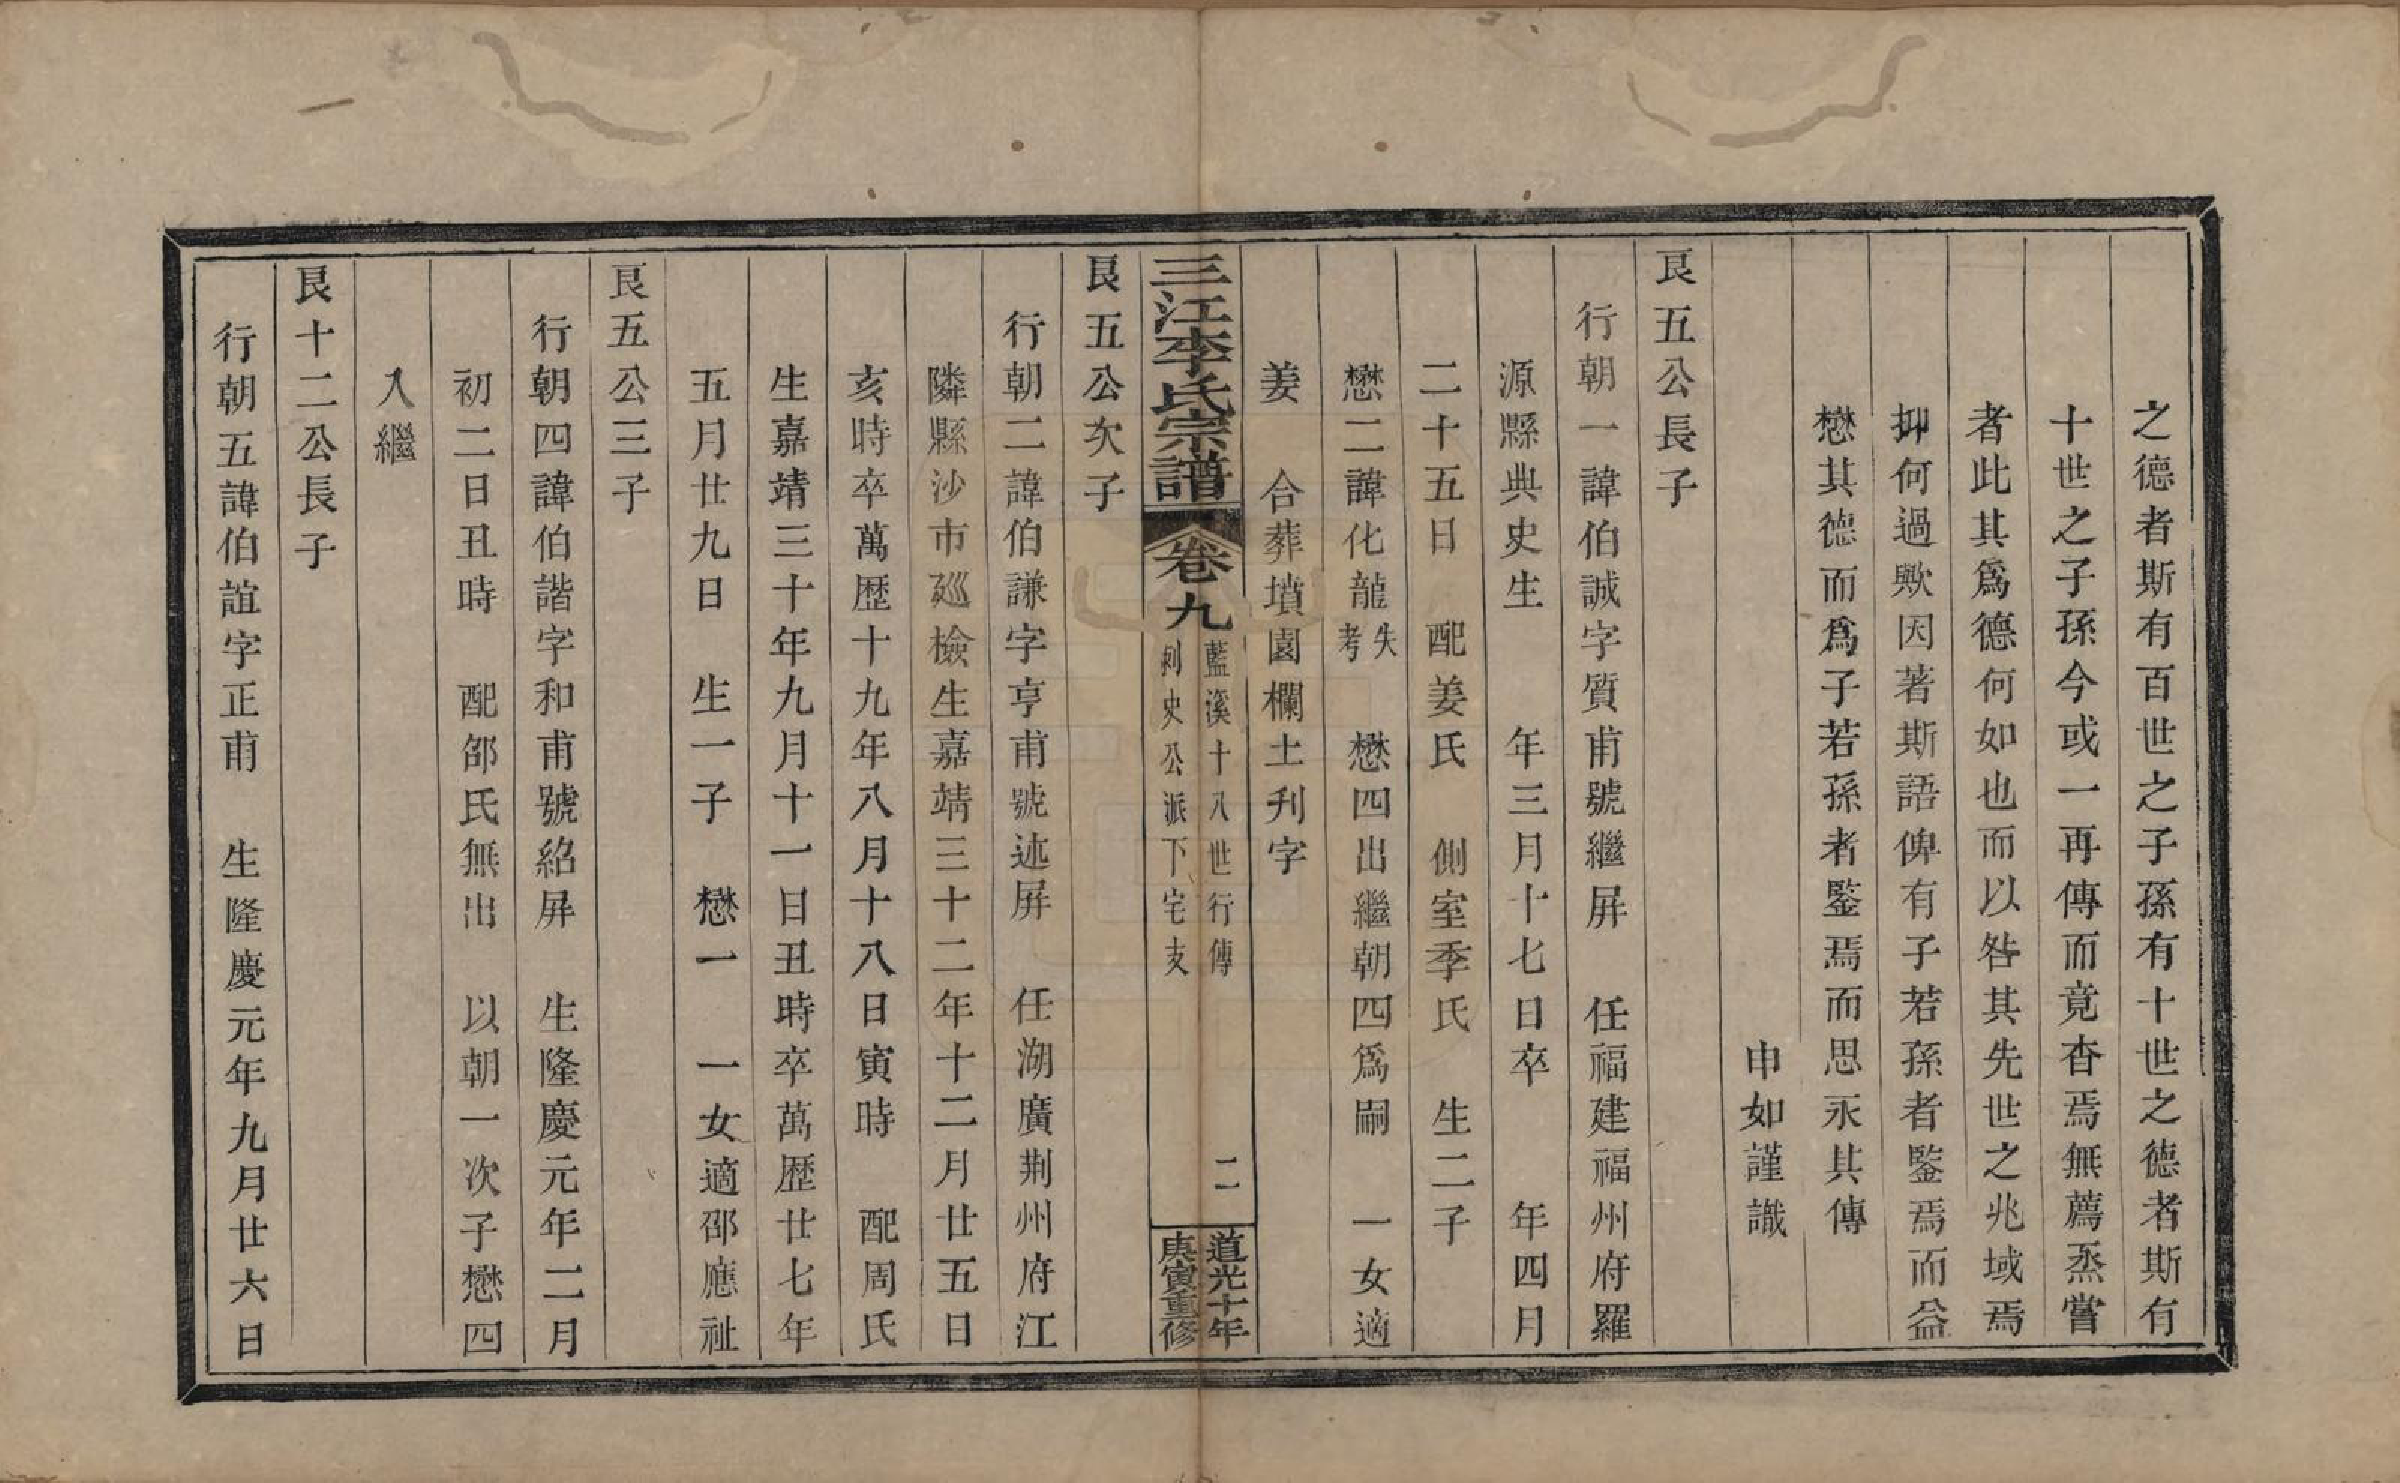 之德者斯有百世之子孫有十世之德者斯有
十世之子孫今或一再傳而竟杳焉無薦烝嘗
者此其爲德何如也而以咎其先世之兆域焉
抑何過歟因著斯語俾有子若孫者鑒焉而益
懋其德而爲子若孫者鑒焉而思永其傳
申如謹識
艮五公長子
行朝一諱伯誠字質甫號繼屏　任福建福州府羅
源縣典史生　　年三月十七日卒　　年四月
二十五日　配姜氏　側室季氏　生二子
懋二諱化龍失考　懋四出繼朝四爲嗣　一女適
姜　合葬墳園欄土刋字
三江李氏宗譜　卷九　藍溪十八世行傳　刺史公派下宅支　二　道光十年　庚寅重修
艮五公次子
行朝二諱伯謙字亨甫號述屏　任湖廣荆州府江
隣縣沙市廵檢生嘉靖三十二年十二月廿五日
亥時卒萬歷十九年八月十八日寅時　配周氏
生嘉靖三十年九月十一日丑時卒萬歷廿七年
五月廿九日　生一子　懋一　一女適邵應祉
艮五公三子
行朝四諱伯諧字和甫號紹屏　生隆慶元年二月
初二日丑時　配邵氏無出　以朝一次子懋四
入繼
艮十二公長子
行朝五諱伯誼字正甫　生隆慶元年九月廿六日